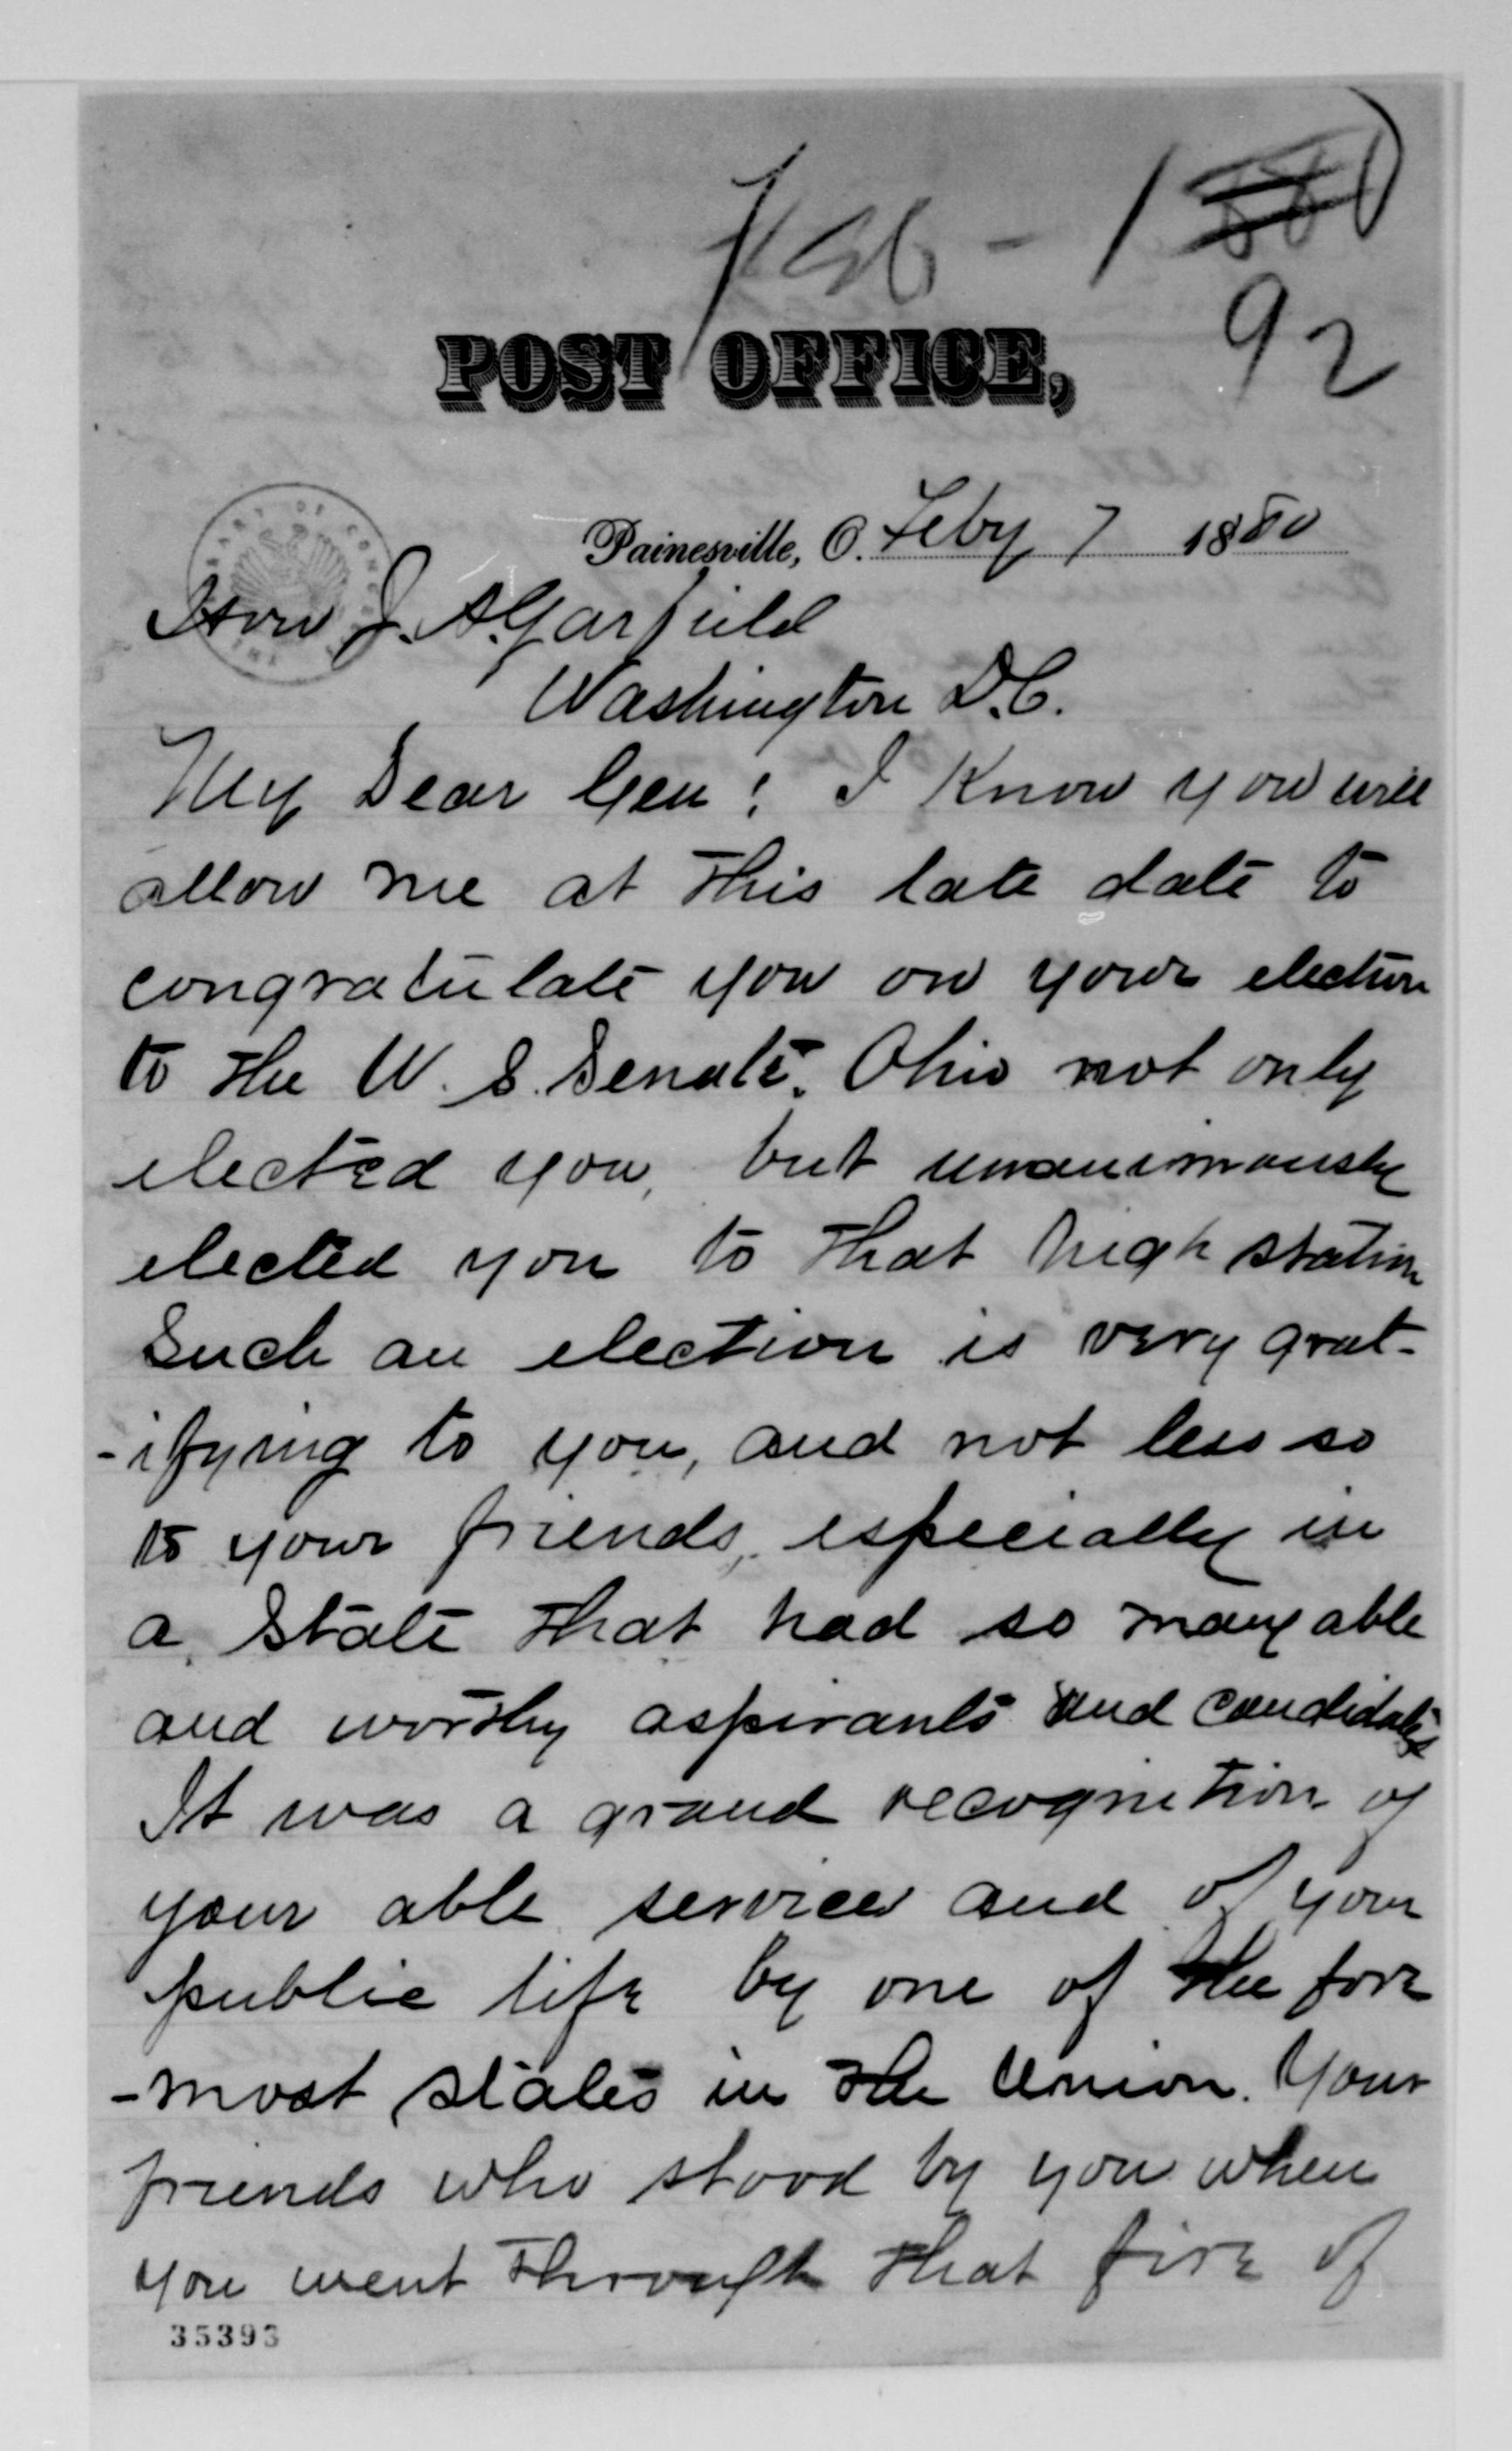 Feb - 1880
92
POST OFFICE,
Painesville, O. Feby 7 1880
Hon J. A. Garfield
Washington D.C.
My Dear Gen: I know you will
allow me at this late date to
congratulate you on your election
to the U. S. Senate. Ohio not only
elected you, but unanimously
elected you to that high station
Such an election is very grat-
-ifying to you, and not less so
to your friends, especially in
a State that had so many able
and worthy aspirants and candidates
It was a grand recognition of
your able services and of your
public life by one of the fore
-most states in the Union. Your
friends who stood by you when
you went through that fire of
35393